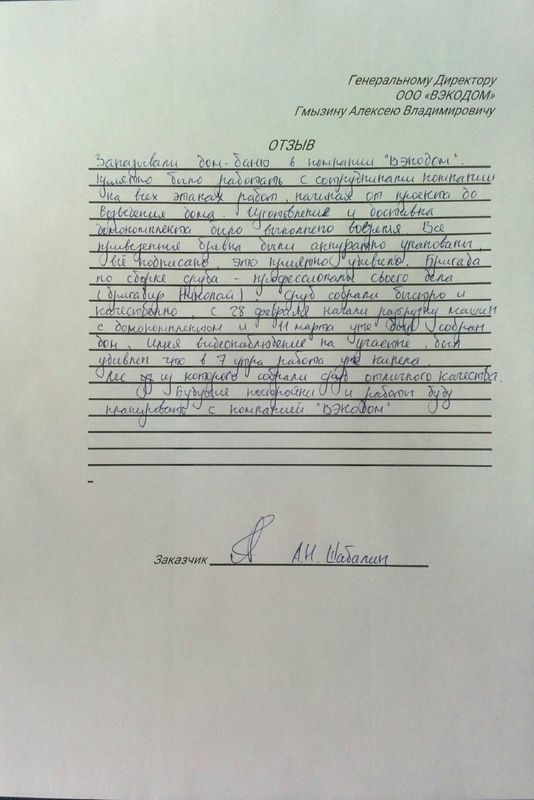 Генеральному Директору
ООО «ВЭКОДОМ»
Гмызину Алексею Владимировичу
ОТЗЫВ
дом-баню в компании "ВЭКОДОМ".
было работать с сотрудниками компании
на всех этапах работ, начиная от проекта до
возведения дома. Изготовление и доставка
домокомплекта было выполнено вовремя. Все
привезенные бревна были аккуратно упакованы,
всё подписано, это приятно удивило. Бригада
по сборке сруба - профессионалы своего дела
(бригадир Николай). Сруб собрали быстро и
качественно, с 28 февраля начали разгрузку машин
с домокомплектом и 11 марта уже был собран
дом. Имея видеонаблюдение на участке, был
удивлен что в 7 утра работа уже кипела
Лес из которого собрали сруб отличного качества.
Будущие постройки и работы буду
планировать с компанией "ВЭКОДОМ"
Заказчик А.Н. Шабалин